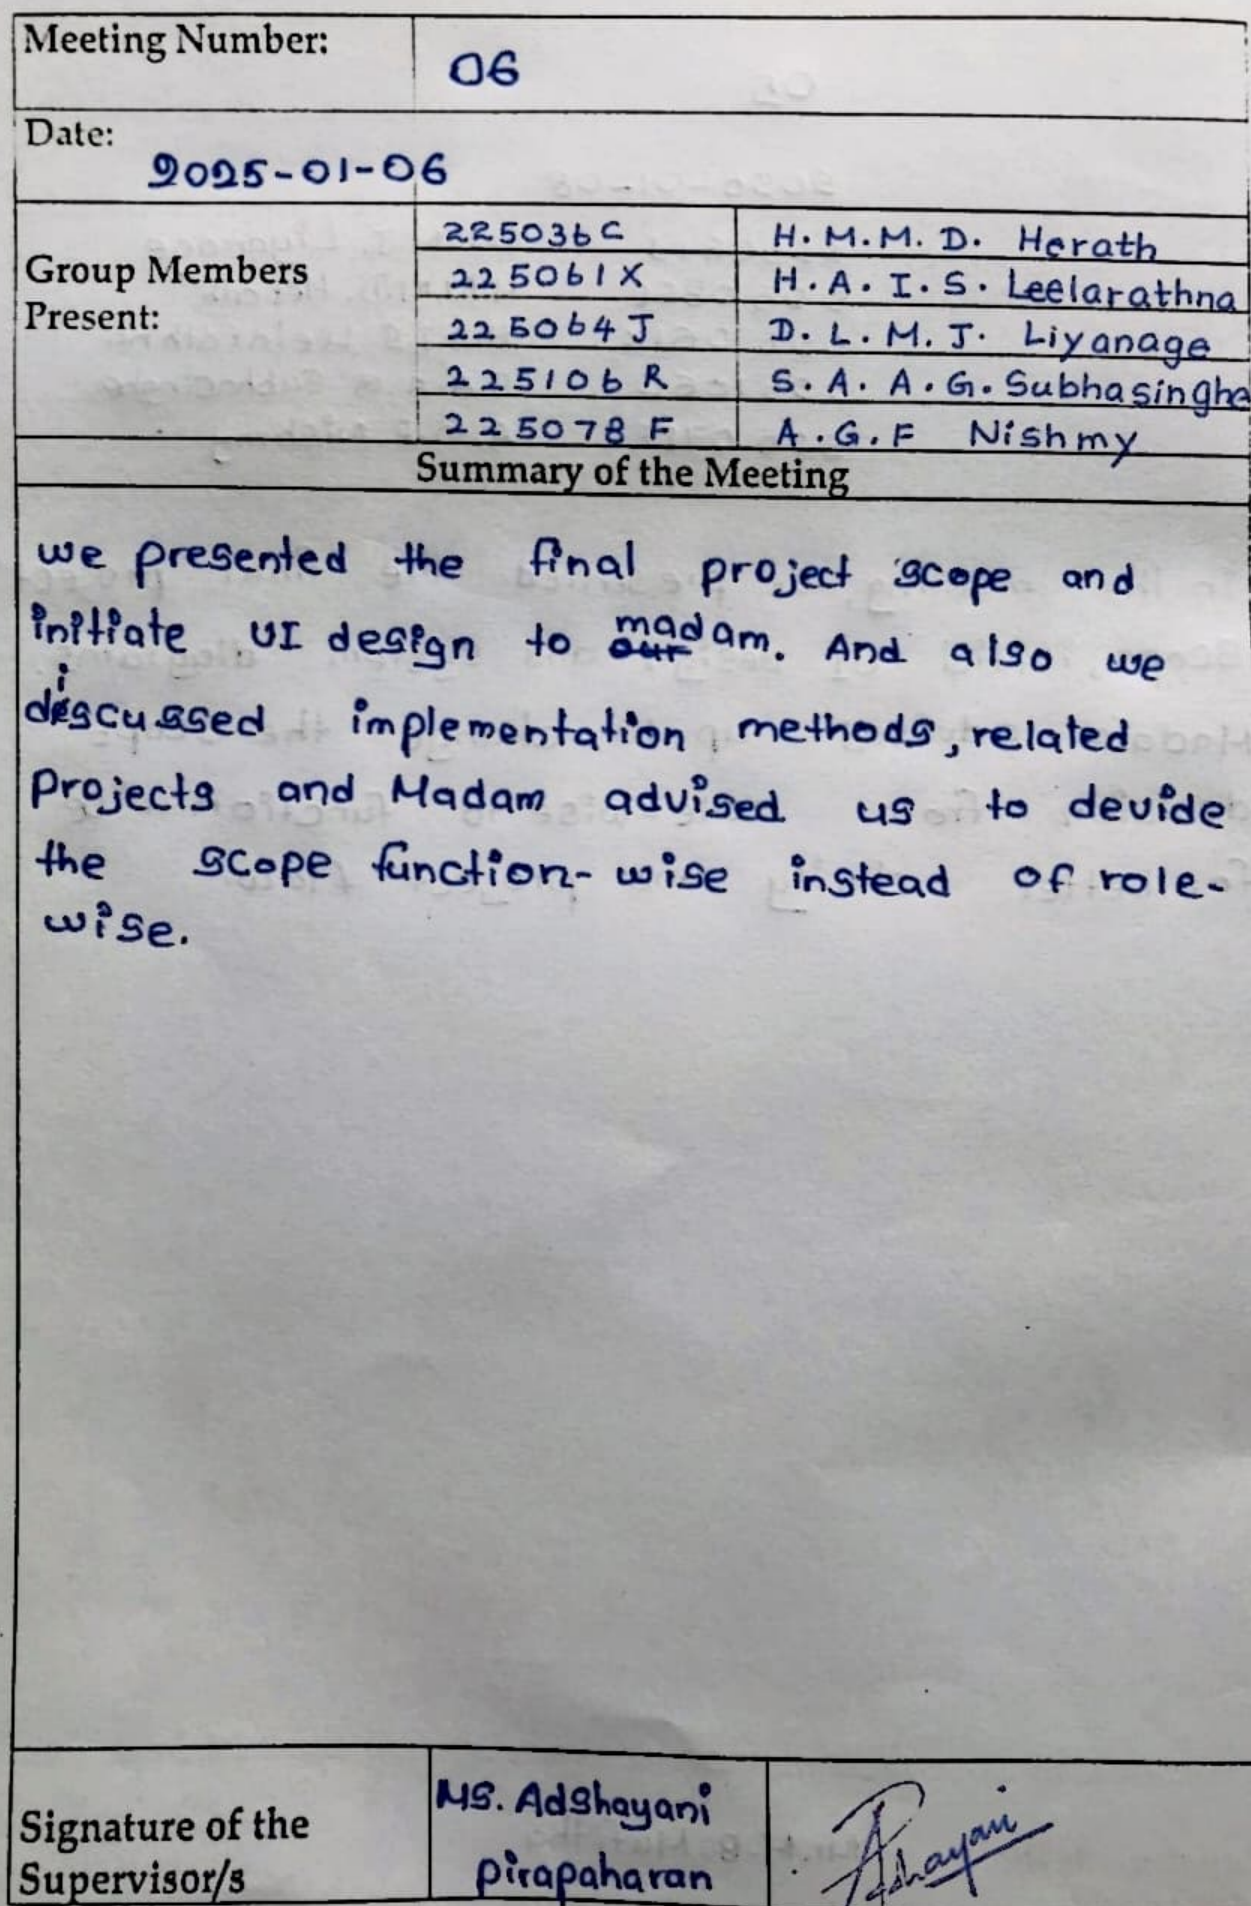 Meeting Number: 06
Date:
2025-01-06
Group Members Present:
225036C H.M.M.D. Herath
225061X H.A.I.S. Leelarathna
225064J D.L.M.J. Liyanage
225106R S.A.A.G. Subhasinghe
225078F A.G.F Nishmy
Summary of the Meeting
we presented the final project scope and
initiate UI design to our madam. And also we
discussed implementation methods, related
Projects and Madam advised us to devide
the scope function-wise instead of role-
wise.
Signature of the Supervisor/s
Ms. Adshayani
Pirapaharan
Adshayani